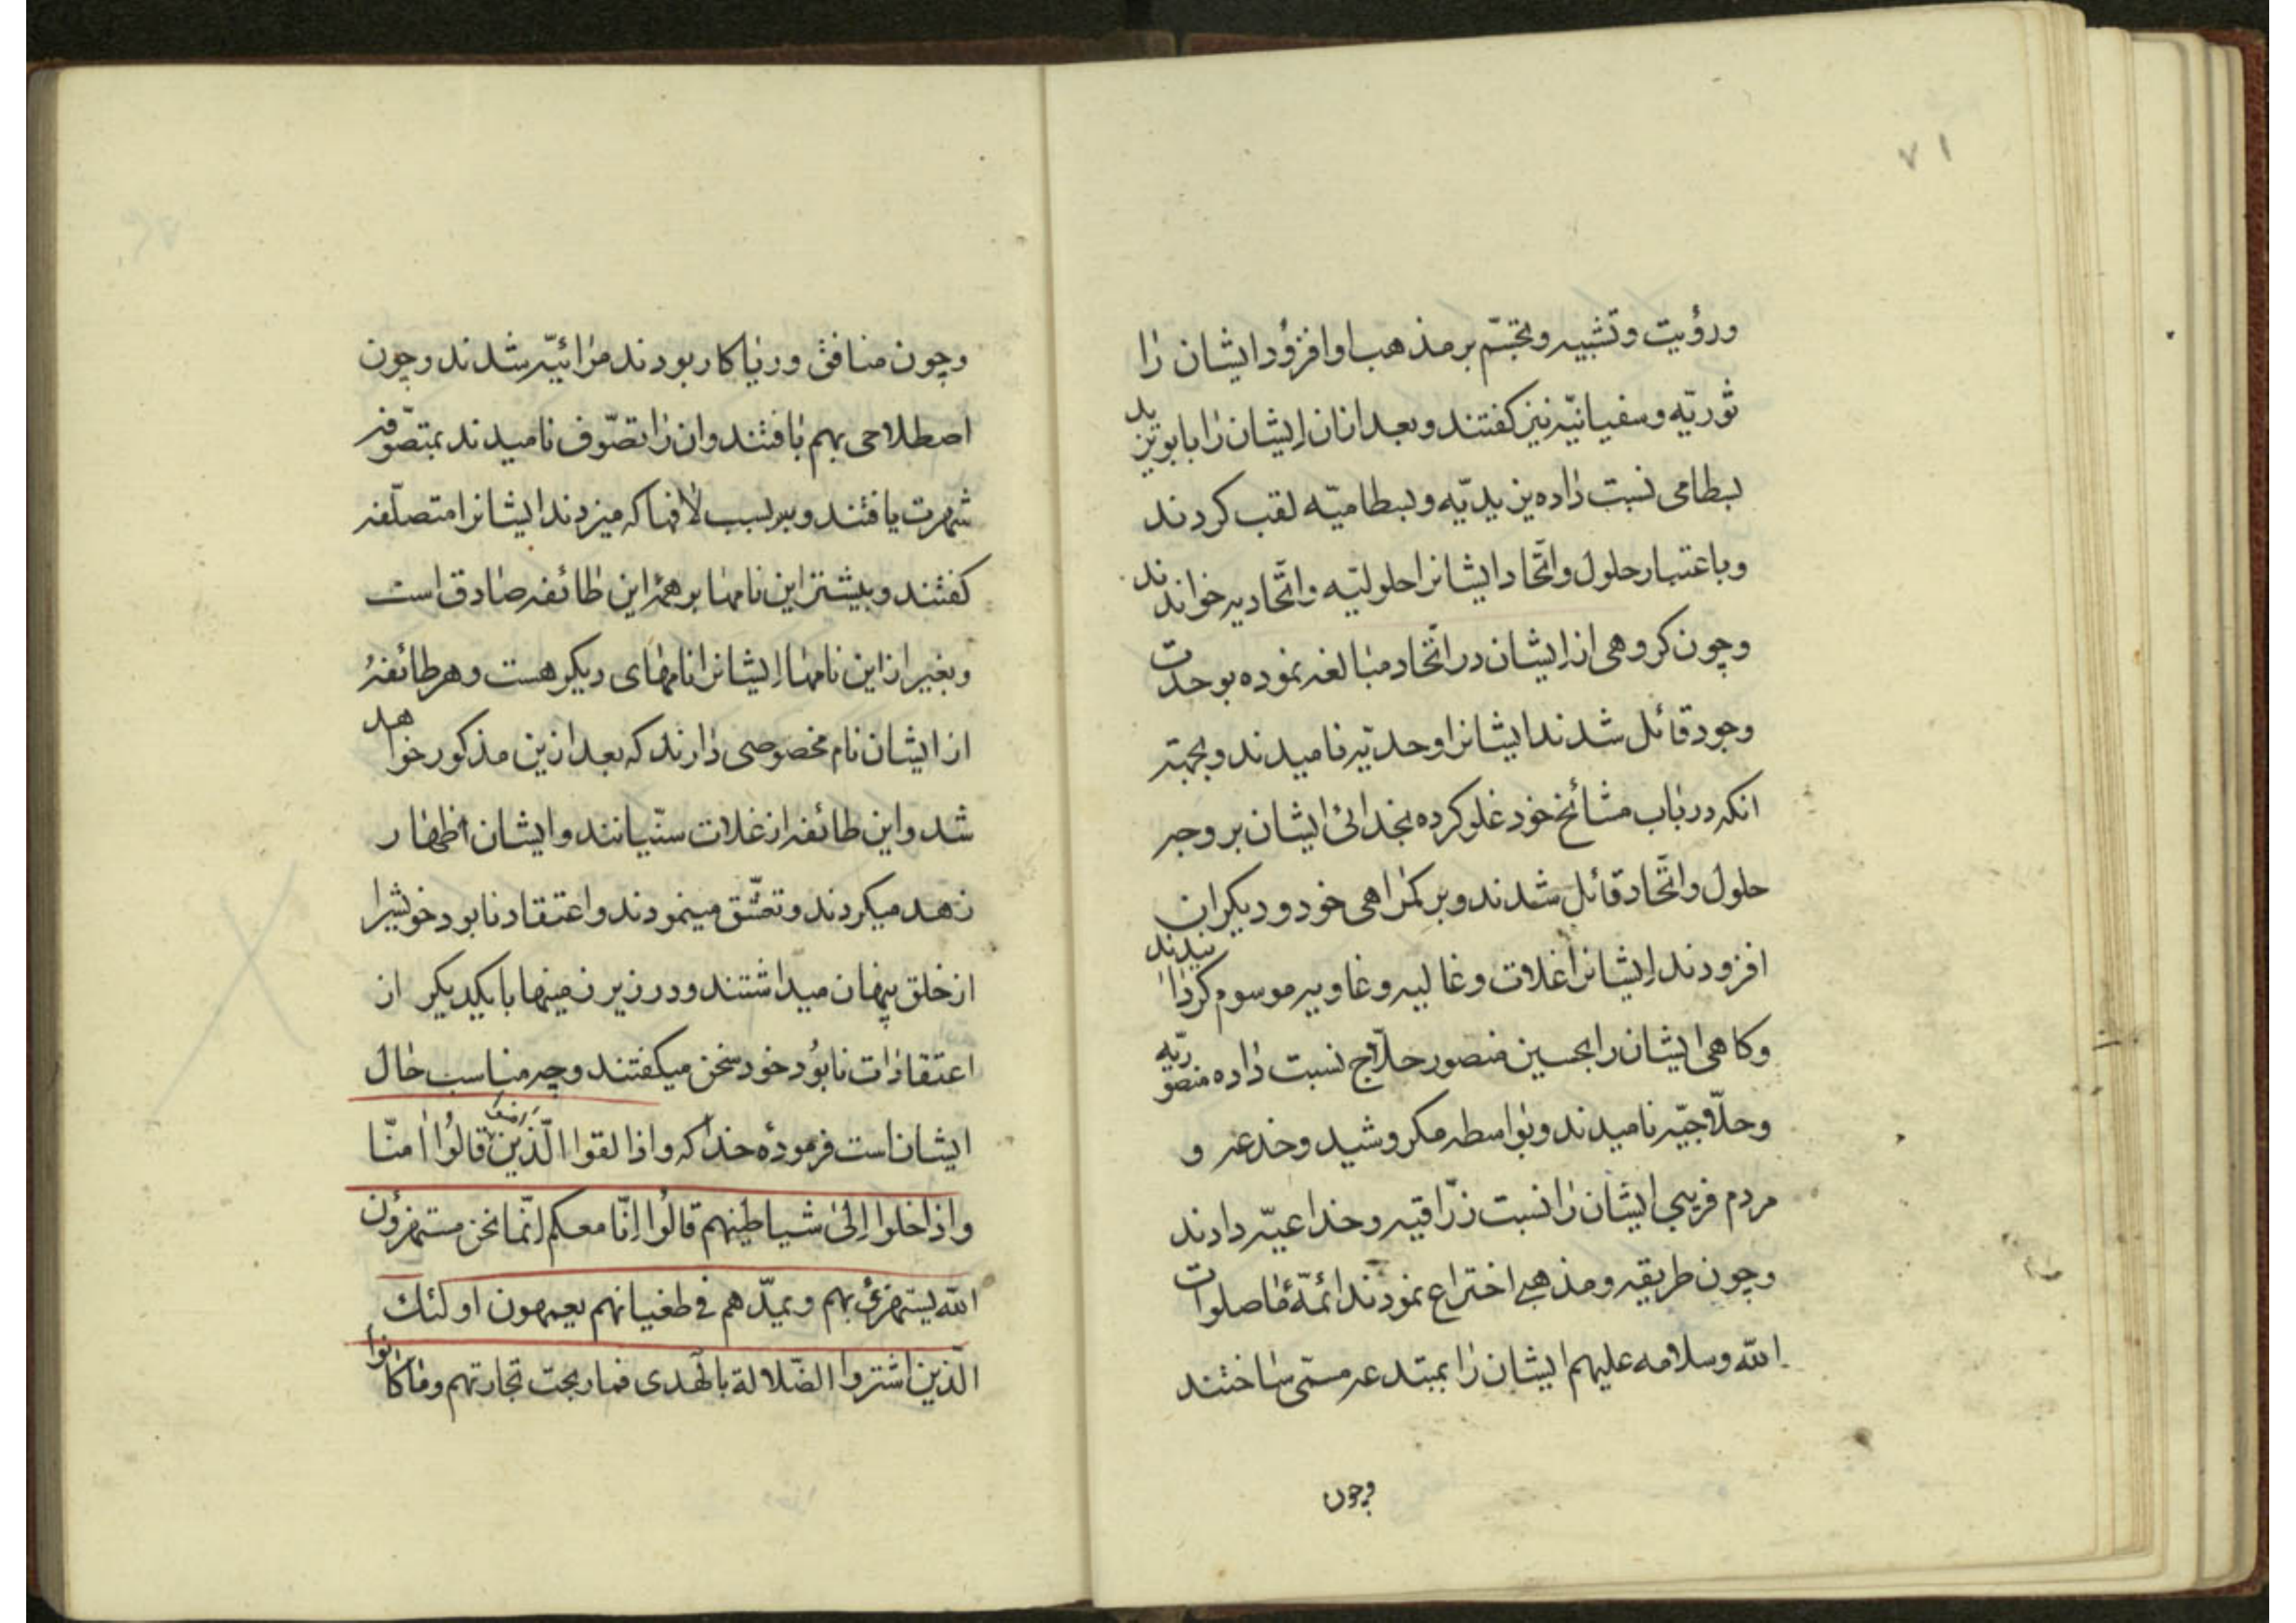 ۷۱
ورؤیت وتشبیه وتجسّم بر مذهب او افزود ایشان را
ثوریّه وسفیانیّه نیز کفتند وبعد ازان ایشان را بابویزید
بسطامی نسبت داده یزیدیّه وبسطامیّه لقب کردند
وباعتبار حلول واتّحاد ایشانرا حلولیّه واتّحادیه خواندند
وچون کروهی از ایشان در اتّحاد مبالغه نموده بوحدت
وجود قائل شدند ایشانرا وحدتیّه نامیدند وبجهته
انکه در باب مشائخ خود غلو کرده بخدائی ایشان بر وجه
حلول واتّحاد قائل شدند وبر کمراهی خود و دیکران
افزودند ایشانرا غلات وغالیه وغاویه موسوم کردانیدند
وکاهی ایشان را بحسین منصور حلّاج نسبت داده منصوریّه
وحلّاجیّه نامیدند وبواسطه مکر وشید وخدعه و
مردم فریبی ایشان را نسبت زرّاقیه وخداعیّه دادند
وچون طریقه ومذهبی اختراع نمودند ائمّهٔ ما صلوات
الله وسلامه علیهم ایشان را بمبتدعه مسمّی ساختند
وچون
وچون منافق وریاکار بودند مرائیّه شدند وچون
اصطلاحی بهم بافتند وان را تصوّف نامیدند بمتصوّفه
شهرت یافتند وبه سبب لافها که میزدند ایشانرا متصلّفه
کفتند وبیشتر این نامها بر همهٔ این طائفه صادق است
وبغیر از این نامها ایشانرا نامهای دیکر هست وهر طائفهٔ
از ایشان نام مخصوصی دارند که بعد ازین مذکور خواهد
شد واین طائفه از غلات سنّیانند وایشان اظهار
زهد میکردند وتعشّق مینمودند واعتقاد نابود خویشرا
از خلق پنهان میداشتند ودر زیر زمینها با یکدیکر از
اعتقادات نابود خود سخن میکفتند وچه مناسب حال
ایشان است فرمودهٔ خدا که واذا لقوا الّذین قالوا امنّا
واذا خلوا إلی شیاطینهم قالوا إنّا معکم إنّما نحن مستهزؤن
الله یستهزئ بهم ویمدّهم فی طغیانهم یعمهون اولئك
الّذین اشتروا الضّلالة بالهدی فما ربحت تجارتهم وما کانوا